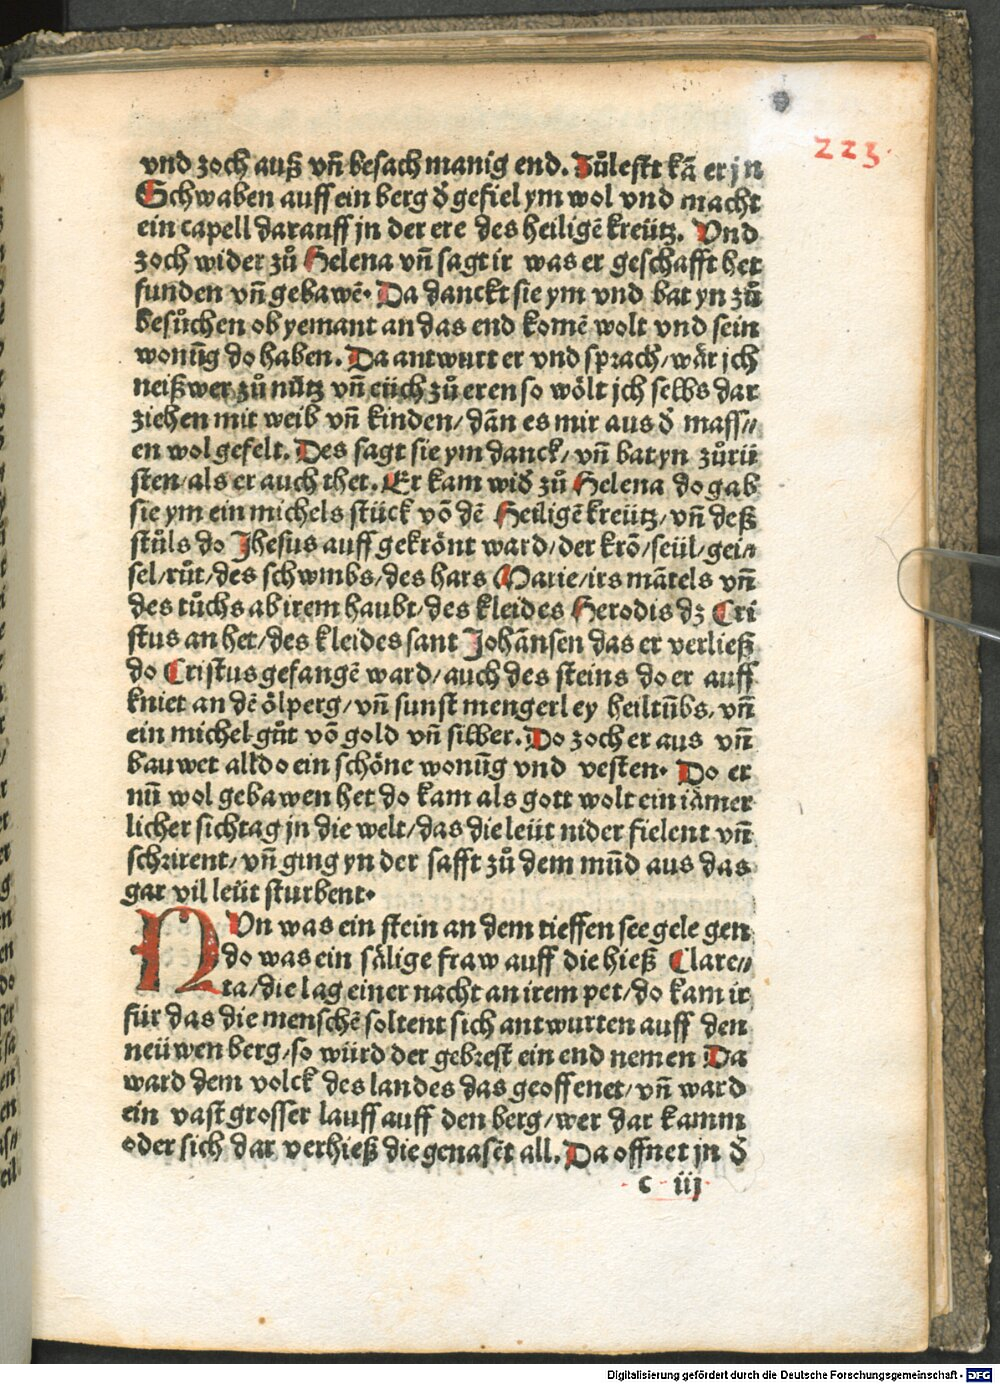 223.
vnd zoch auß vñ besach manig end. Zůlestt kā er jn
Schwaben auff ein berg ď gefiel ym wol vnd macht
ein capell darauff jn der ere des heiligē kreütz. Vnd
zoch wider zů Helena vñ sagt ir was er geschafft het
funden vñ gebawē. Da danckt sie ym vnd bat yn zů
besůchen ob yemant an das end komē wolt vnd sein
wonūg do haben. Da antwurt er vnd sprach/wär jch
neißwer zů nütz vñ eüch zů eren so wölt jch selbs dar
ziehen mit weib vñ kinden/dān es mir aus ď mass//
en wol gefelt. Des sagt sie ym danck/vñ bat yn zůrü
sten/als er auch thet. Er kam wiď zů Helena do gab
sie ym ein michels stück vō dē Heiligē kreütz/vñ deß
stůls do Jhesus auff gekrönt ward/der krō/seül/gei//
sel/růt/des schwmbs/des hars Marie/irs mātels vñ
des tůchs ab irem haubt/des kleides Herodis dz Cri
stus an het/des kleides sant Johānsen das er verließ
do Cristus gefangē ward/auch des steins do er auff
kniet an dē ölperg/vñ sunst mengerley heiltūbs/vñ
ein michel gůt vō gold vñ silber. Do zoch er aus vñ
bauwet alldo ein schöne wonūg vnd vesten. Do er
nū wol gebawen het do kam als gott wolt ein iämer
licher sichtag jn die welt/das die leüt nider fielent vñ
schrirent/vñ ging yn der safft zů dem mūd aus das
gar vil leüt sturbent.
NVn was ein stein an dem tieffen see gelegen
do was ein sälige fraw auff die hieß Clare//
ta/die lag einer nacht an irem pet/do kam ir
für das die menschē soltent sich antwurten auff den
neüwen berg/so würd der gebrest ein end nemen Da
ward dem volck des landes das geoffenet/vñ ward
ein vast grosser lauff auff den berg/wer dar kamm
oder sich dar verhieß die genasēt all. Da offnet jn ď
c iij
Digitalisierung gefördert durch die Deutsche Forschungsgemeinschaft - DFG